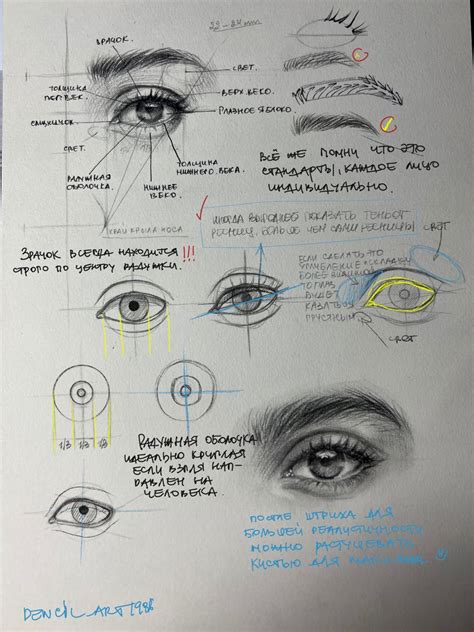 22-24 mm
ЗРАЧОК.
СВЕТ.
ТОЛЩИНА
ВЕРХ.ВЕКО.
ГЛАЗНОЕ ЯБЛОКО
СВЕТ.
РАДУЖНАЯ
ОБОЛОЧКА.
НИЖНЕЕ
ВЕКО.
ТОЛЩИНА
НИЖНЕГО.ВЕКА.
КРАЙ КРЫЛА НОСА
ВСЁ ЖЕ ПОМНИ ЧТО ЭТО
СТАНДАРТЫ, КАЖДОЕ ЛИЦО
ИНДИВИДУАЛЬНО.
ИНОГДА ВЫГОДНЕЕ ПОКАЗАТЬ ТЕНЬ ОТ
РЕСНИЦ, БОЛЬШЕ ЧЕМ САМИ РЕСНИЦЫ
СВЕТ
ЗРАЧОК ВСЕГДА НАХОДИТСЯ !!!
СТРОГО ПО ЦЕНТРУ РАДУЖКИ.
ЕСЛИ СДЕЛАТЬ ЭТО
УГЛУБЛЕНИЕ И СКЛАДКУ
БОЛЕЕ
ТО ГЛАЗ
БУДЕТ
КАЗАТЬСЯ
ГРУСТНЫМ
СВЕТ
1/3 1/3 1/3
РАДУЖНАЯ ОБОЛОЧКА
ИДЕАЛЬНО КРУГЛАЯ
ЕСЛИ ВЗГЛЯД НАП-
РАВЛЕН НА
ЧЕЛОВЕКА.
ПОСЛЕ ШТРИХА ДЛЯ
БОЛЬШЕЙ РЕАЛИСТИЧНОСТИ
МОЖНО РАСТУШЕВАТЬ
КИСТЬЮ ДЛЯ МАКИЯЖА
PENCIL_ART1986